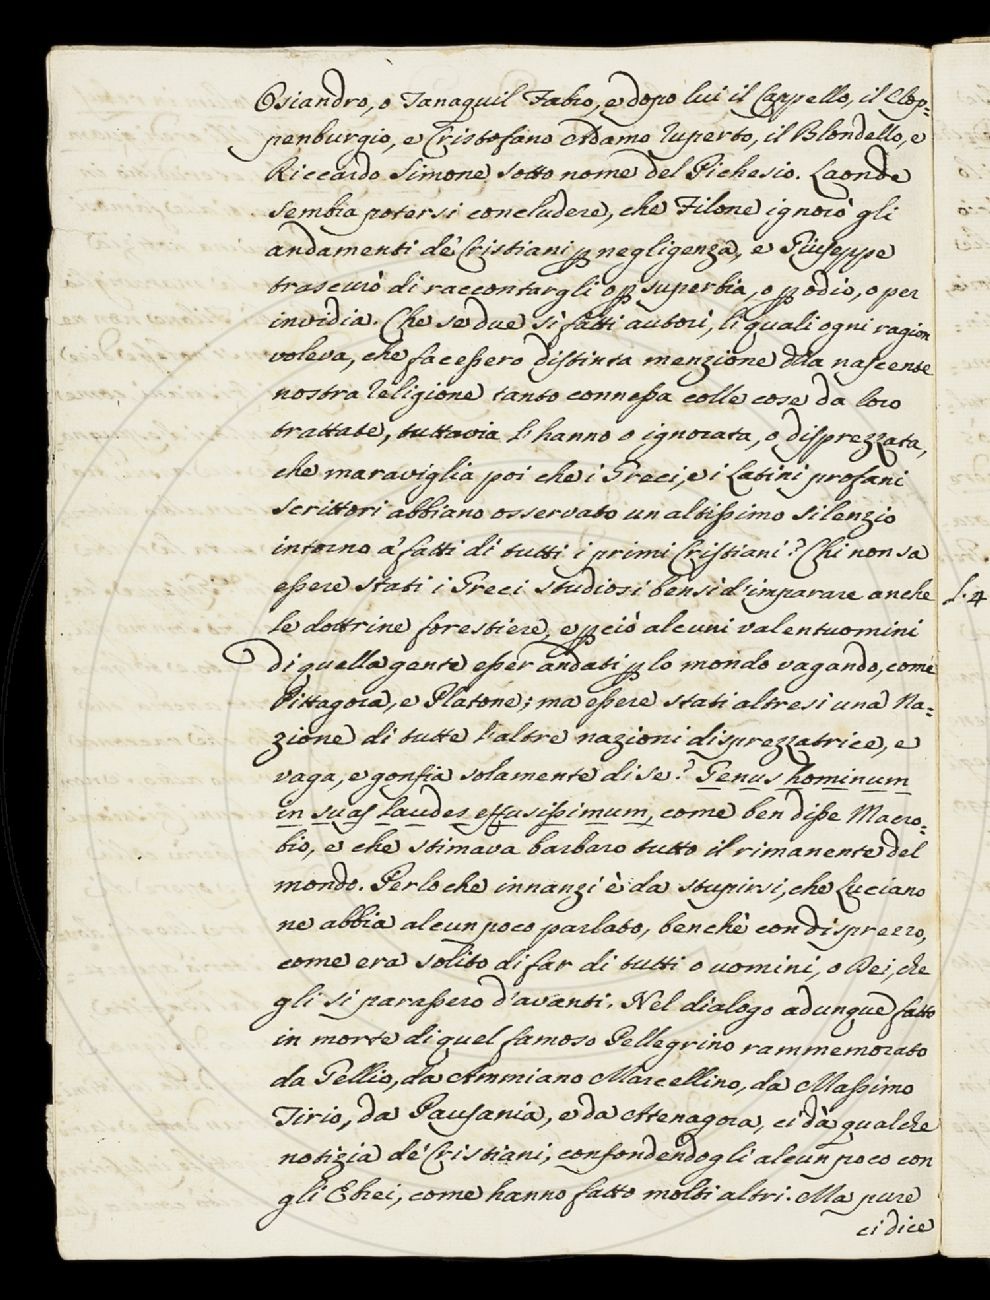 Osiandro, o Tanaquil Fabro, e dopo lui il Cappello, il Clop-
penburgio, e Cristofano Adamo Ruperto, il Blondello, e
Riccardo Simone sotto nome del Pichesio. Laonde
sembra potersi concludere, che Filone ignorò gli
andamenti de' Cristiani p negligenza, e Giuseppe
trascurò di raccontargli o p superbia, o p odio, o per
invidia. Che se due sì fatti autori, li quali ogni ragion
voleva, che facessero distinta menzione dlla nascente
nostra religione tanto connessa colle cose da loro
trattate, tuttavia l'hanno o ignorata, o disprezzata,
che maraviglia poi che i Greci, e i Latini profani
scrittori abbiano osservato un altissimo silenzio
intorno a' fatti di tutti i primi Cristiani? Chi non sa
essere stati i Greci studiosi bensì d'imparare anche
le dottrine forestiere, e pciò alcuni valentuomini
di quella gente esser andati p lo mondo vagando, come
Pittagora, e Platone; ma essere stati altresì una Na-
zione di tutte l'altre nazioni disprezzatrice, e
vaga, e gonfia solamente di se? Genus hominum
in suas laudes effusissimum, come ben disse Macro-
bio, e che stimava barbaro tutto il rimanente del
mondo. Perloche innanzi è da stupirsi, che Luciano
ne abbia alcun poco parlato, benchè con disprezzo,
come era solito di far di tutti o uomini, o Dei, che
gli si parassero d'avanti. Nel dialogo adunque fatto
in morte di quel famoso Pellegrino rammemorato
da Gellio, da Ammiano Marcellino, da Massimo
Tirio, da Pausania, e da Atenagora, ci dà qualche
notizia de' Cristiani, confondendogli alcun poco con
gli Ebrei, come hanno fatto molti altri. Ma pure
ci dice